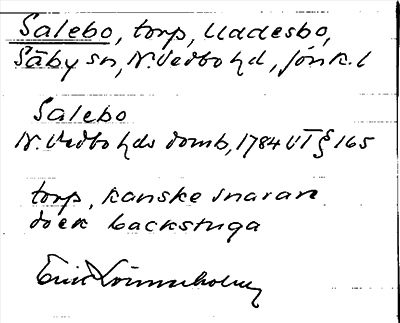 Salebo, torp, Uddesbo,
Säby sn, N. Vedbo hd, Jönk. l
Salebo
N. Vedbo hds domb, 1784 VT § 165
torp, kanske snarare
dock backstuga
Erik